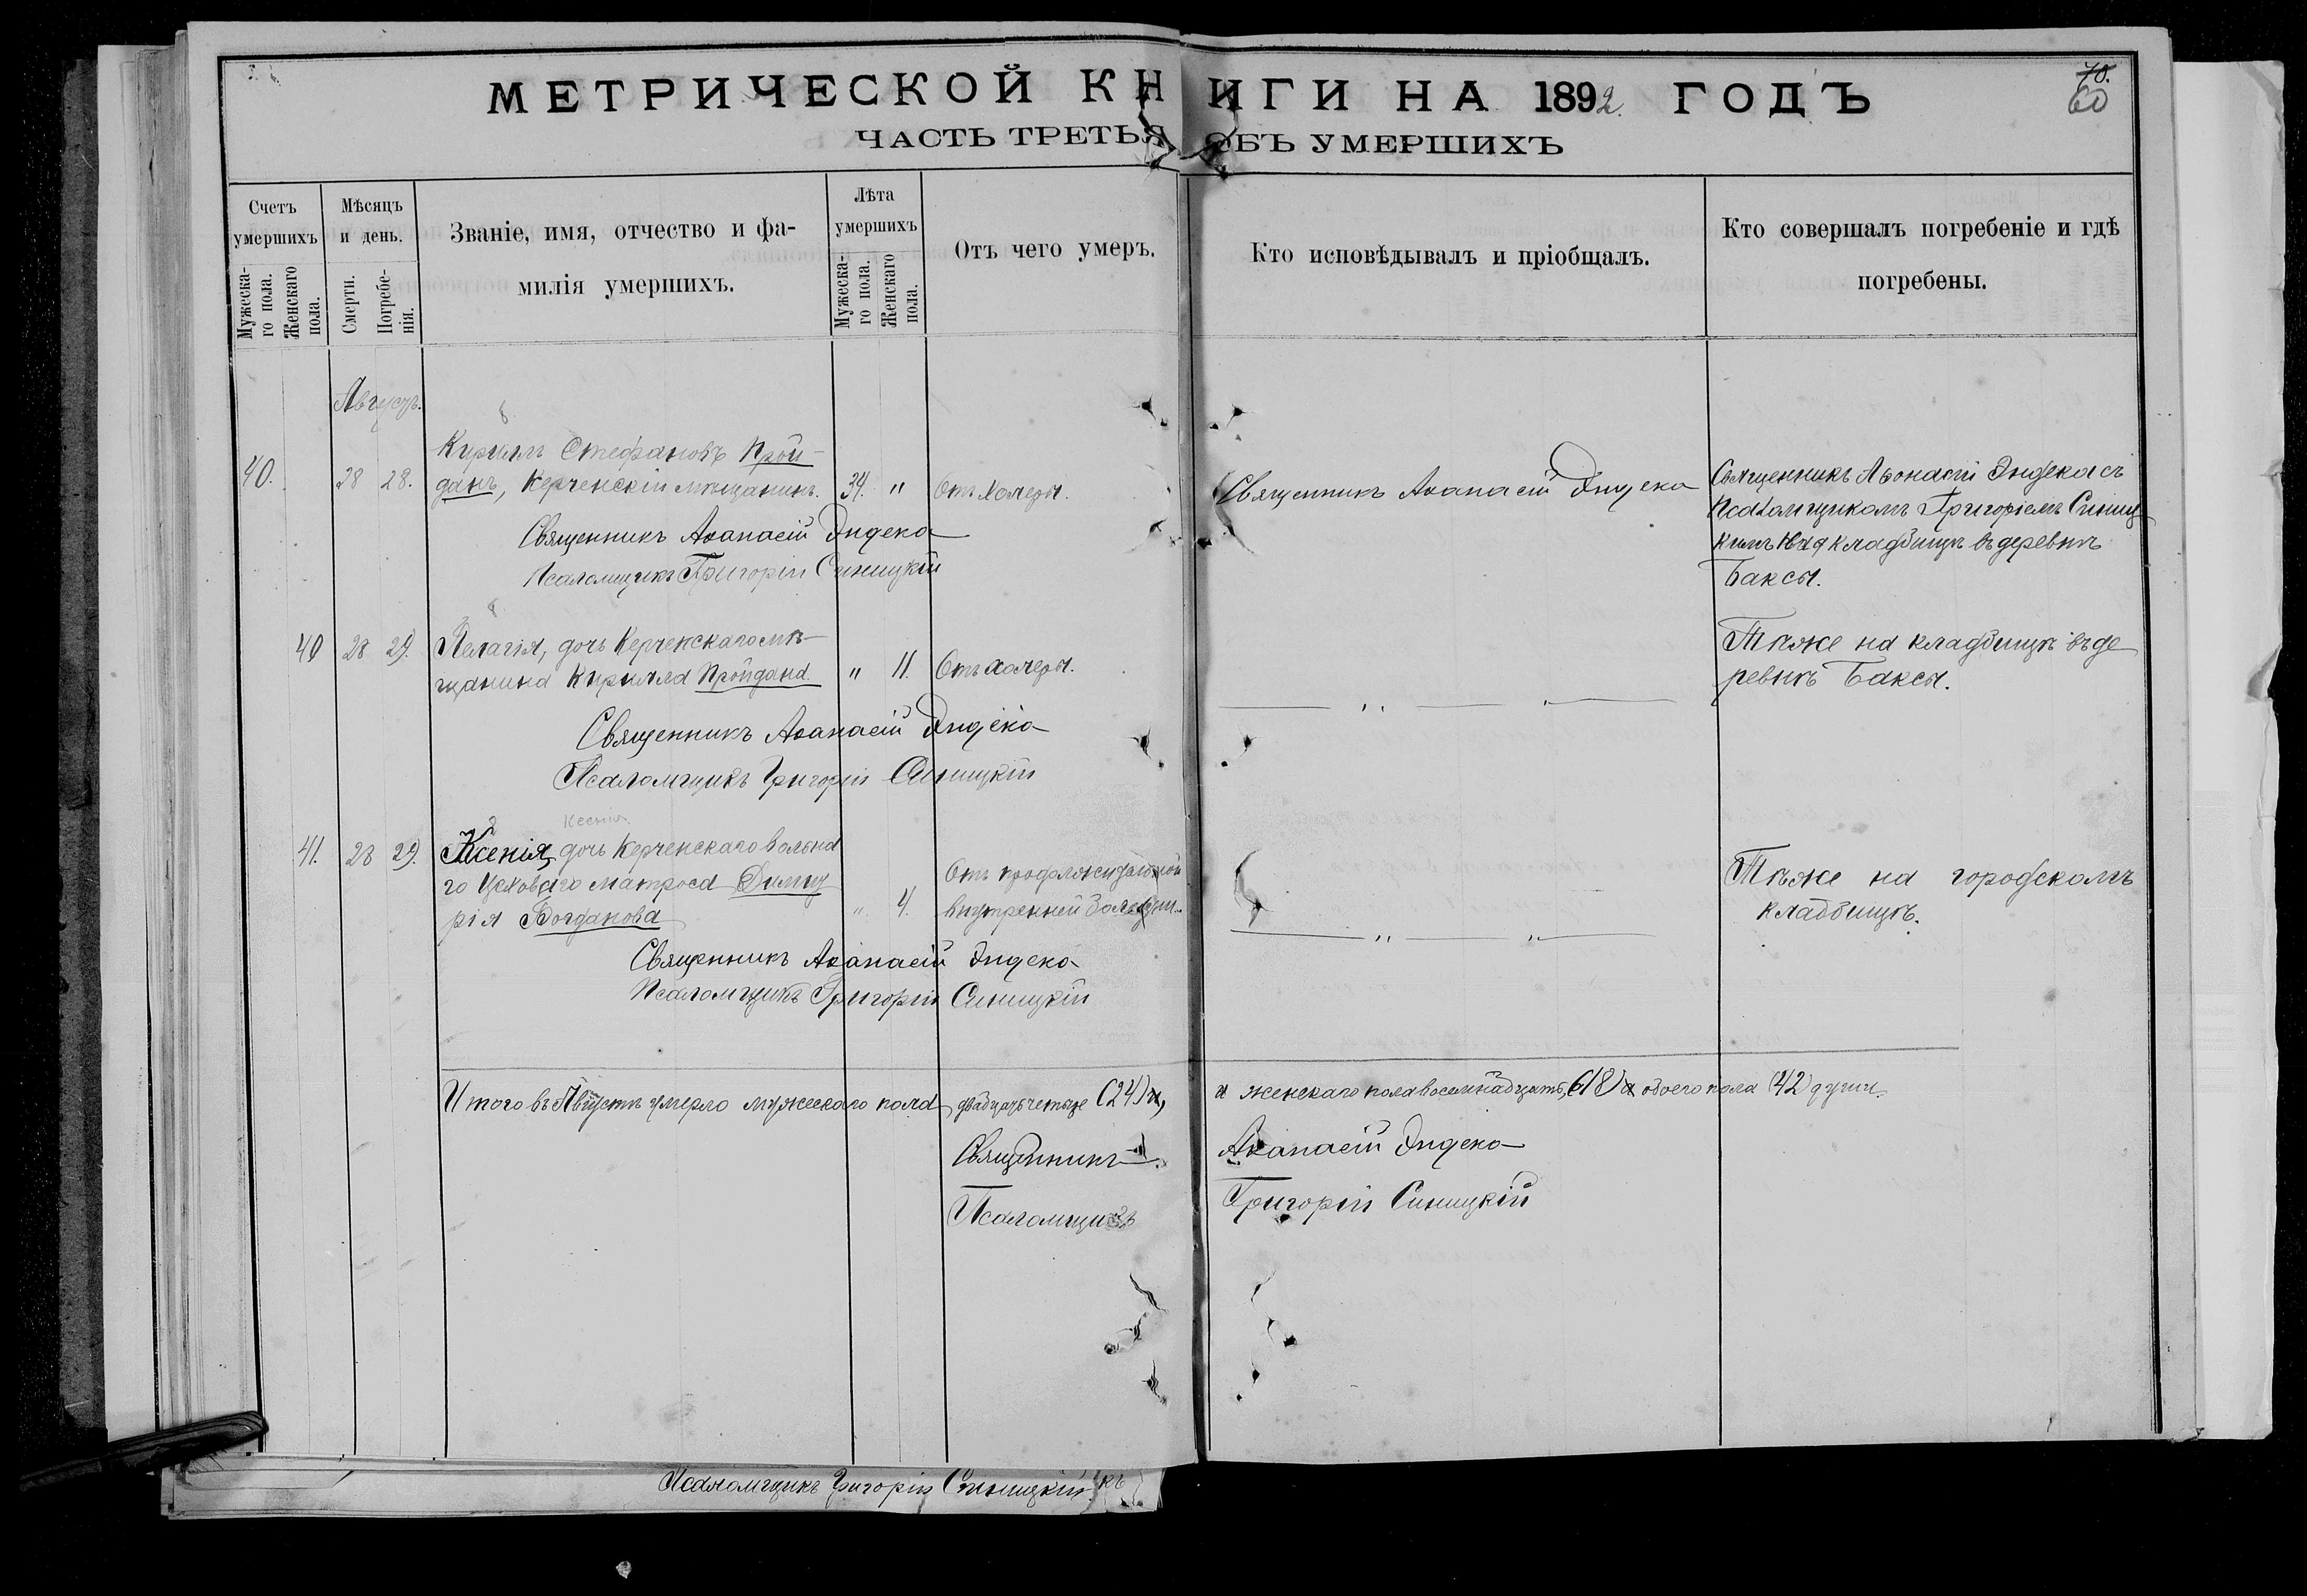 МЕТРИЧЕСКОЙ КНИГИ НА 1892. ГОДЪ
70.
60
ЧАСТЬ ТРЕТЬЯ ОБЪ УМЕРШИХЪ
Счетъ умершихъ
Мужеска-го пола.
Женскаго пола.
Мѣсяцъ и день.
Смерти.
Погребе-нія.
Званіе, имя, отчество и фа-
милія умершихъ.
Лѣта умершихъ
Мужеска-го пола.
Женскаго пола.
Отъ чего умеръ.
Кто исповѣдывалъ и пріобщалъ.
Кто совершалъ погребеніе и гдѣ
погребены.
Августъ.
40. 28 28.
Кириллъ Стефановъ Прой-
данъ, Керченскій мѣщанинъ. 34. " Отъ холеры.
Священникъ Аѳанасій Эндека
Псаломщикъ Григорій Синицкій
Священникъ Аѳанасій Эндека
Священникъ Аѳонасій Эндека съ
Псаломщикомъ Григоріемъ Синиц
кимъ на кладбищѣ въ деревнѣ
Баксы.
40 28 29.
Пелагія, дочь Керченскаго мѣ-
щанина Кирилла Пройдана. " 11. Отъ холеры.
Священникъ Аѳанасій Эндека
Псаломщикъ Григорій Синицкій
" "
Тѣже на кладбищѣ въ де
ревнѣ Баксы.
Ксенія
41. 28 29.
Ксенія, дочь Керченскаго вольна
го цеховаго матроса Димит
рія Богданова " 4.
Отъ продолжительной
внутренней болезни.
Священникъ Аѳанасій Эндека
Псаломщикъ Григорій Синицкій
" "
Тѣже на городскомъ
кладбищѣ.
Итого въ Августѣ умерло мужескаго пола двадцать четыре (24) и, и женскаго пола восемнадцать, (18) а обоего пола (42) души.
Священникъ Аѳанасій Эндека
Псаломщикъ Григорій Синицкій
Псаломщикъ Григорій Синицкій къ